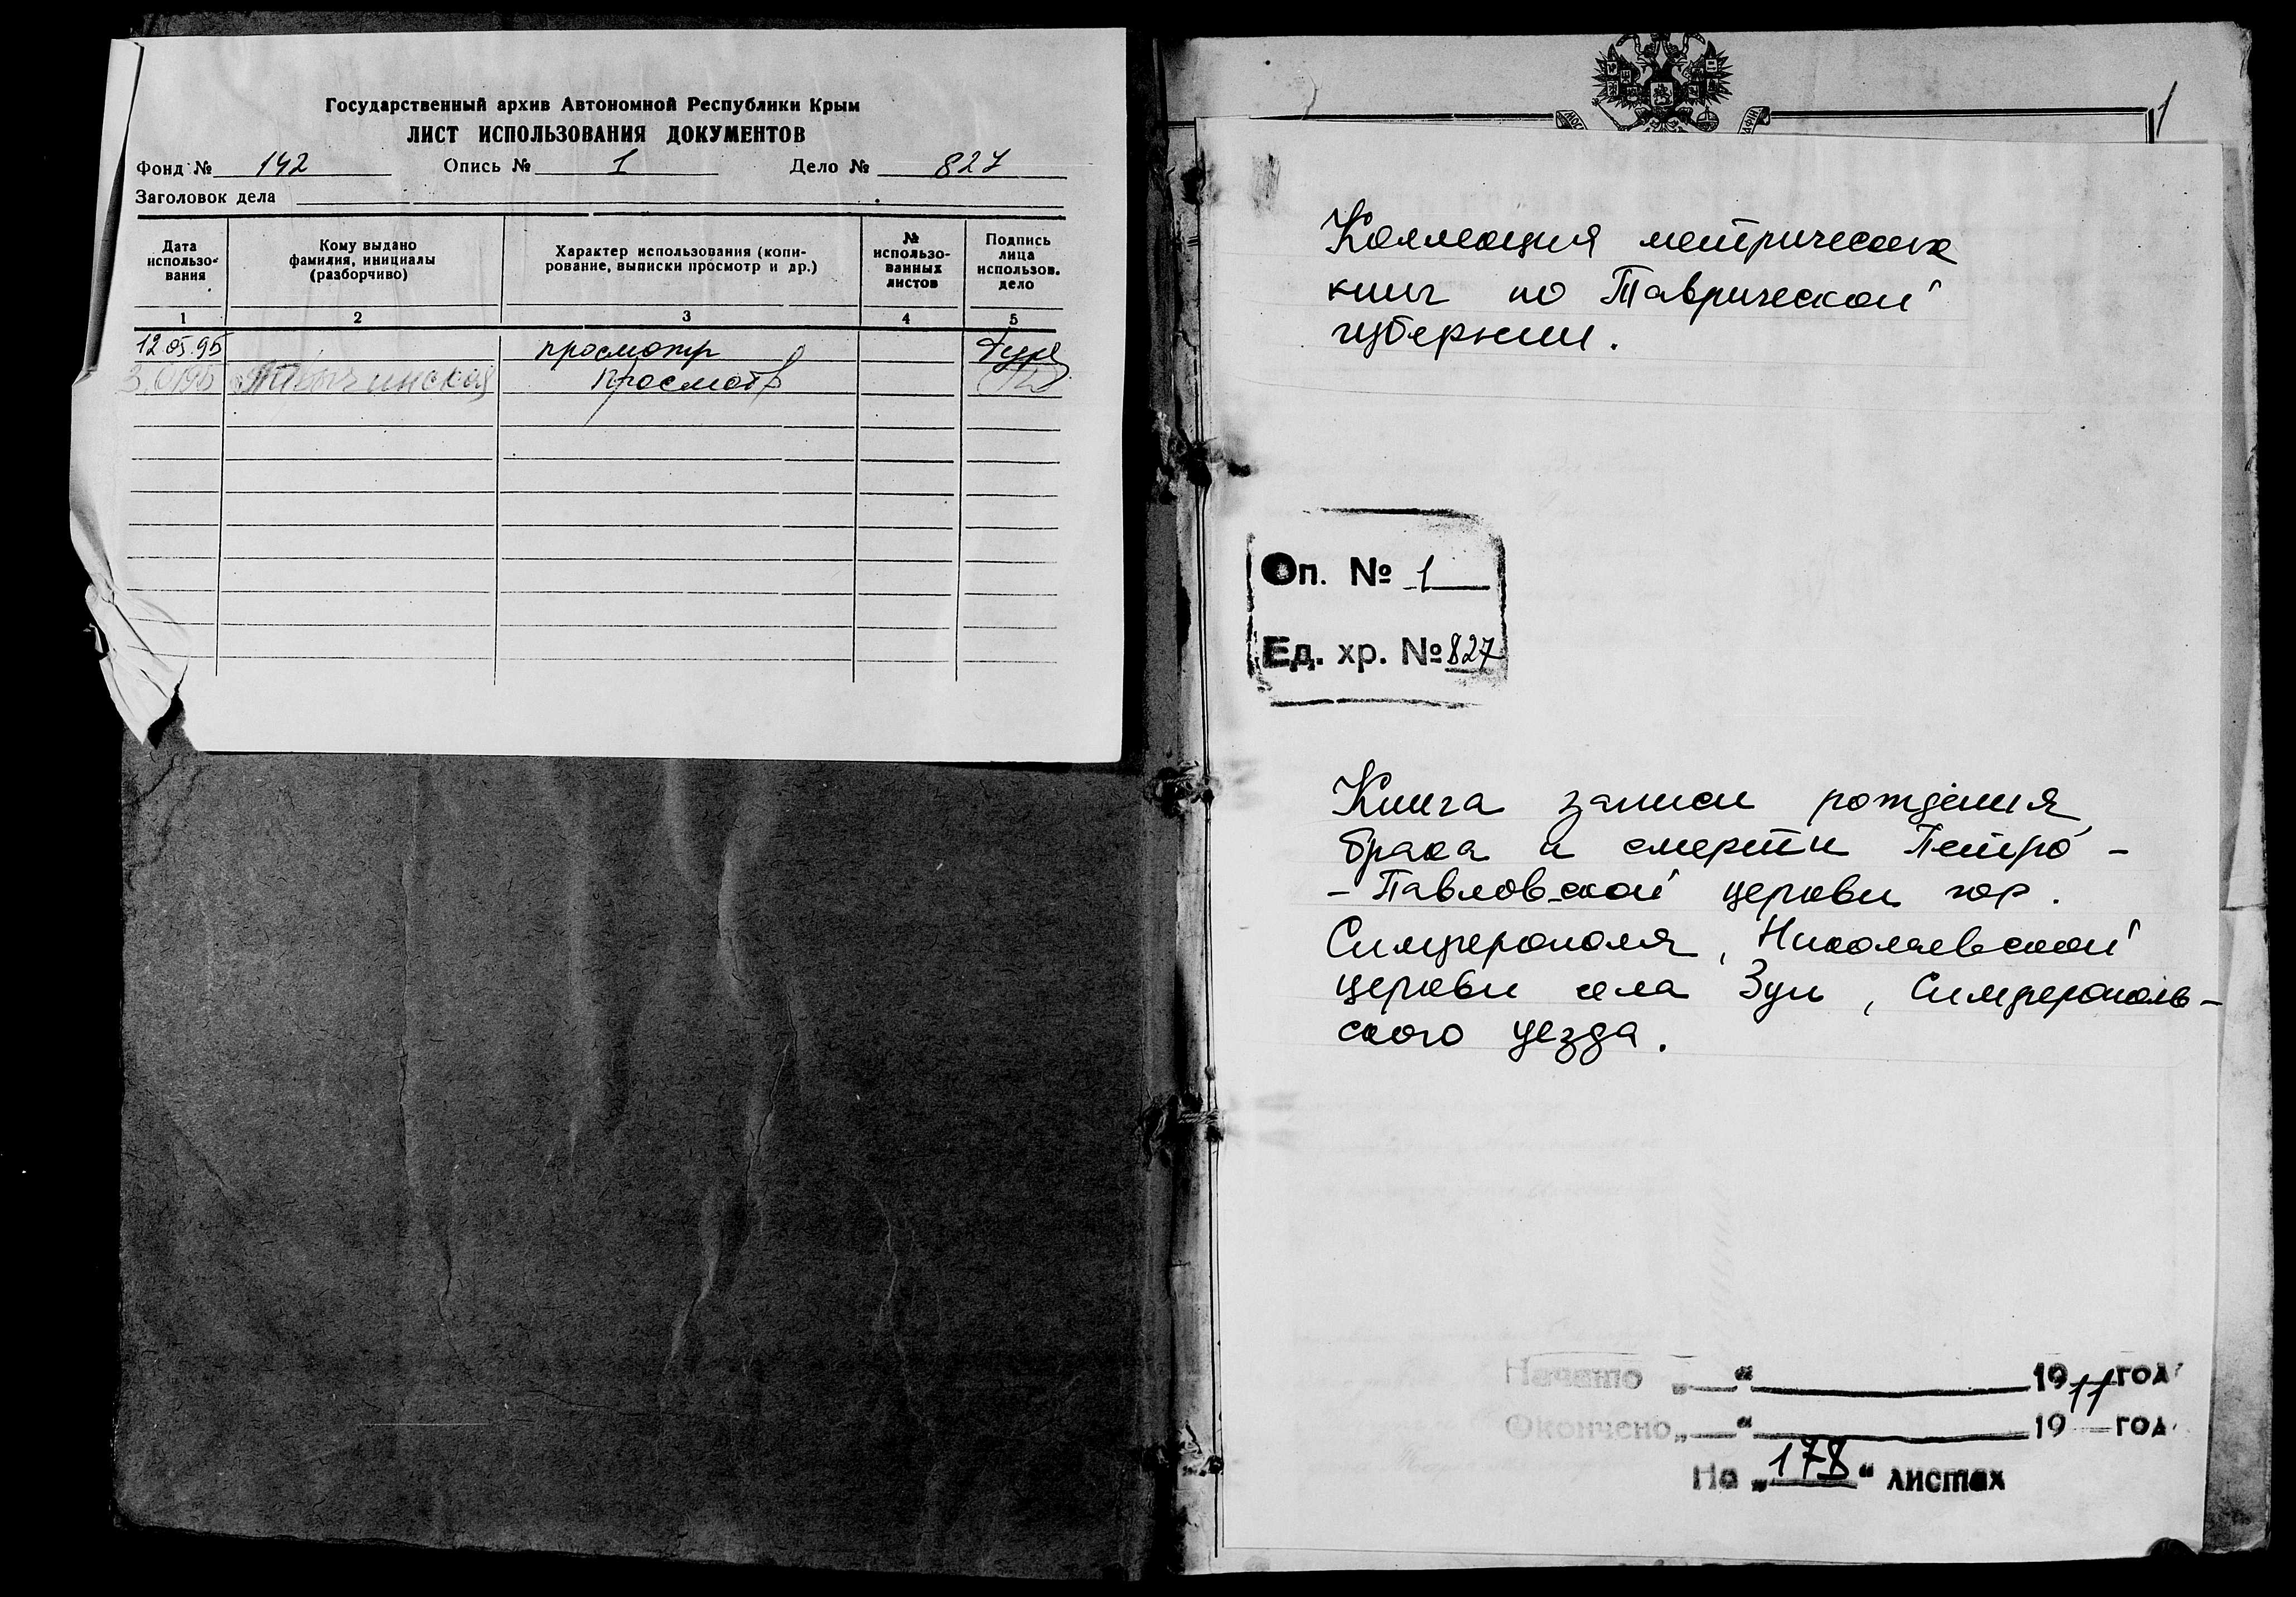 Государственный архив Автономной Республики Крым
ЛИСТ ИСПОЛЬЗОВАНИЯ ДОКУМЕНТОВ
Фонд № 142 Опись № 1 Дело № 827
Заголовок дела
Дата использо-вания
Кому выдано фамилия, инициалы (разборчиво)
Характер использования (копи-рование, выписки просмотр и др.)
№ использо-ванных листов
Подпись лица использов. дело
1 2 3 4 5
12.05.95 просмотр
просмотр
1
Коллекция метрических
книг по Таврической
губернии.
Оп. № 1
Ед. хр. № 827
Книга записи рождения,
брака и смерти Петро-
-Павловской церкви гор.
Симферополя, Николаевской
церкви села Зуи, Симферополь-
ского уезда.
Начато „ “ 1911 год
Окончено „ “ 19 год
На „178“ листах